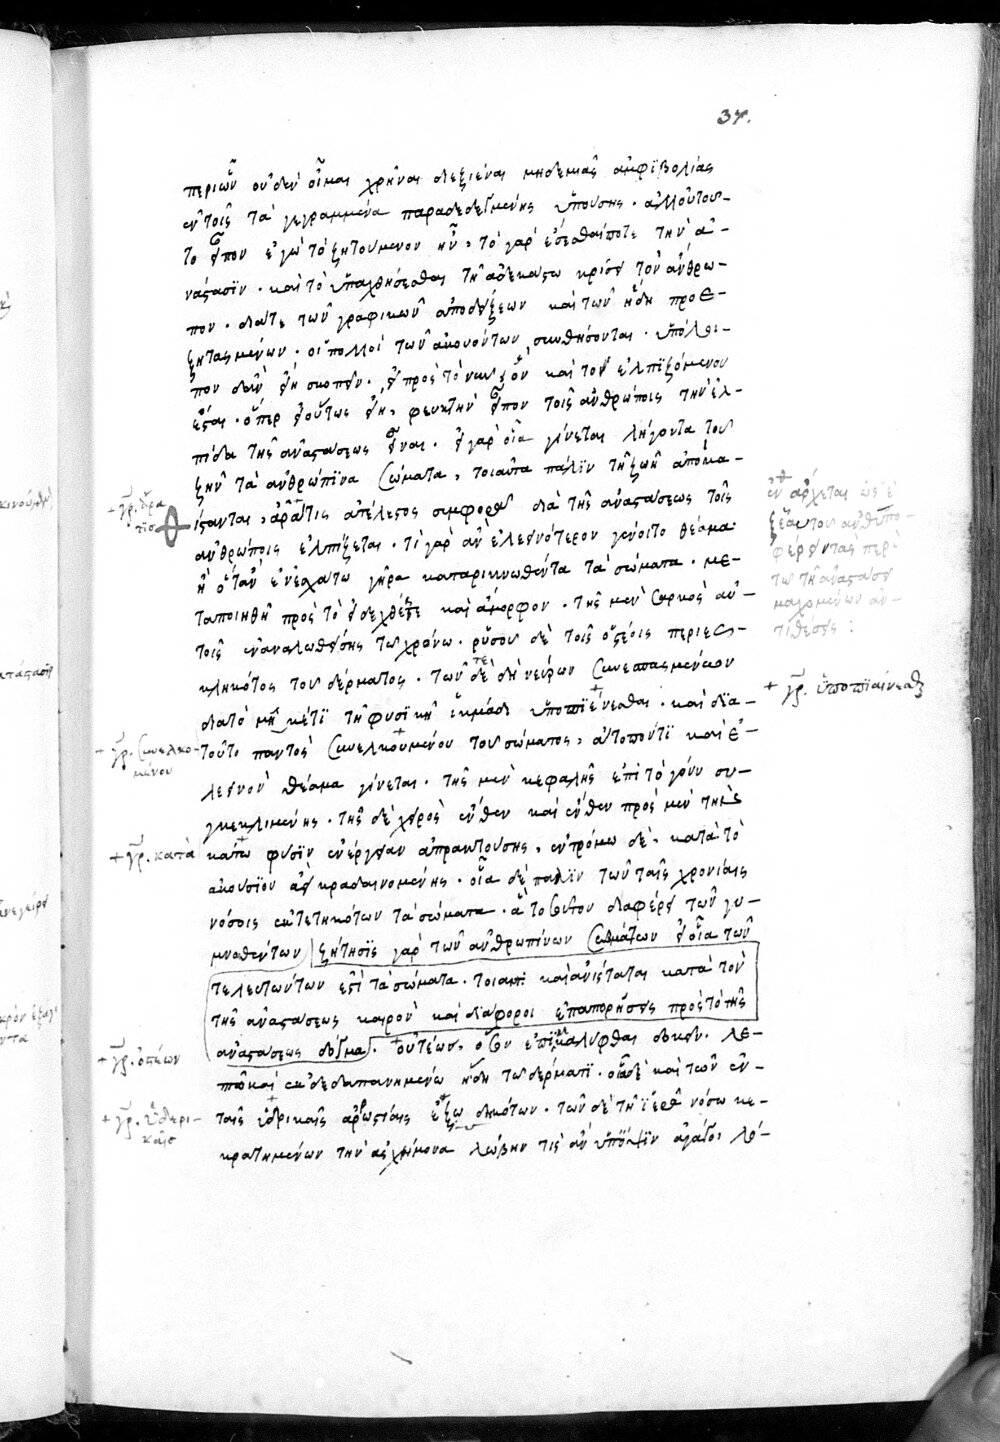 37.
περὶ ὧν οὐδὲν οἶμαι χρῆναι διεξιέναι μηδεμιᾶς ἀμφϊβολίας
ἐν τοῖς τὰ γεγραμμένα παραδεδεγμένης ὑπούσης · ἀλλ' οὐ τοῦ-
το εἶπον ἐγὼ τὸ ζητούμενον ἦν, τὸ γὰρ ἔσεσθαί ποτε τὴν ἀ-
νάστασϊν · καὶ τὸ ὑπαχθήσεσθαι τῇ ἀδεκάστω κρίσει τὸν ἄνθρω-
πον · διά τε τῶν γραφικῶν ἀποδείξεων καὶ τῶν ἤδη προε-
ξητασμένων · οἱ πολλοὶ τῶν ἀκουόντων συνθήσονται · ὑπόλοι-
πον δ' ἂν εἴη σκοπεῖν · εἰ πρὸς τὸ νῦν ὂν καὶ τὸ ἐλπιζόμενον
ἔσται · ὅπερ εἰ οὕτως εἴη, φευκτὴν εἶπον τοῖς ἀνθρώποις τὴν ἐλ-
πίδα τῆς ἀναστάσεως εἶναι · εἰ γὰρ οἷα γίνεται λήγοντα τοῦ
ζῆν τὰ ἀνθρώπϊνα σώματα, τοιαῦτα πάλϊν τῇ ζωῇ ἀποκα-
ίσανται, ἄρα τις ἀτέλεστος συμφορὰ διὰ τῆς ἀναστάσεως τοῖς
ἀνθρώποις ἐλπίζεται · τί γὰρ ἂν ἐλεεινότερον γένοιτο θέαμα·
ἢ ὅταν ἐν ἐσχάτω γήρα καταρικνωθέντα τὰ σώματα · με-
ταποιηθῇ πρὸς τὸ εἰδεχθές τε καὶ ἄμορφον · τῆς μὲν σαρκὸς αὐ-
τοῖς ἀναλωθείσης τῷ χρόνω · ῥυσοῦ δὲ τοῖς ὀστέοις περιεσ-
κληκότος τοῦ δέρματος · τῶν δὲ δὴ νεύρων συνεσπασμένων
διὰ τὸ μηκέτϊ τῇ φυσϊκῇ ἰκμάδι ὑποπϊένεσθαι · καὶ διὰ
τοῦτο παντὸς συνελκουμένου τοῦ σώματος, ἄτοπόν τϊ καὶ ἐ-
λεεινὸν θέαμα γίνεται · τῆς μὲν κεφαλῆς ἐπὶ τὸ γόνυ συ-
γκεκλιμένης · τῆς δὲ χειρὸς ἔνθεν καὶ ἔνθεν πρὸς μὲν τὴν
κάτω φύσϊν ἐνέργειαν ἀπρακτούσης, ἐν τρόμω δὲ · κατὰ τὸ
ἀκούσϊον ἀεὶ κραδαινομένης · οἷα δὲ πάλϊν τῶν ταῖς χρονίαις
νόσοις ἐκτετηκότων τὰ σώματα · ἃ τοσοῦτον διαφέρει τῶν γυ-
μνωθέντων ζήτησϊς γὰρ τῶν ἀνθρωπίνων σωμάτων εἰ οἷα τῶν
τελευτώντων ἐστὶ τὰ σώματα · τοιαῦτα καὶ ἀνίσταται κατὰ τὸν
τῆς ἀναστάσεως καιρὸν καὶ διάφοροι ἐπαπορήσεις πρὸς τὸ τῆς
ἀναστάσεως δόγμα · ὀστέων, ὅσον ἐπϊκαλύφθαι δοκεῖν · λε-
πτῶ καὶ ἐκδεδαπανημένω ἤδη τῷ δέρματϊ · οἷα δὲ καὶ τῶν ἐν
ταῖς ὑδρικαῖς ἀρρωστίαις ἐξωδηκότων · τῶν δὲ τῇ ἱερᾷ νόσω κε-
κρατημένων τὴν ἀσχήμονα λώβην τίς ἂν ὑπ' ὄψϊν ἀγάγοι λό-
+ γρ. ἄρα
τισ
+ γρ. συνελκο-
μένου
+ γρ. κατὰ
+ γρ. ὀστέων
+ γρ. ὑδερι-
καῖσ
ἐν ἄρχεται ὡς ἐ
ξ ἑαυτοῦ ἀνθυπο-
φέρειν τὰς περὶ
τῶ τῆ ἀναστάσει
μαχομένων ἀν-
τιθέσεις :
+ γρ. ὑποπϊαίνεσθαι